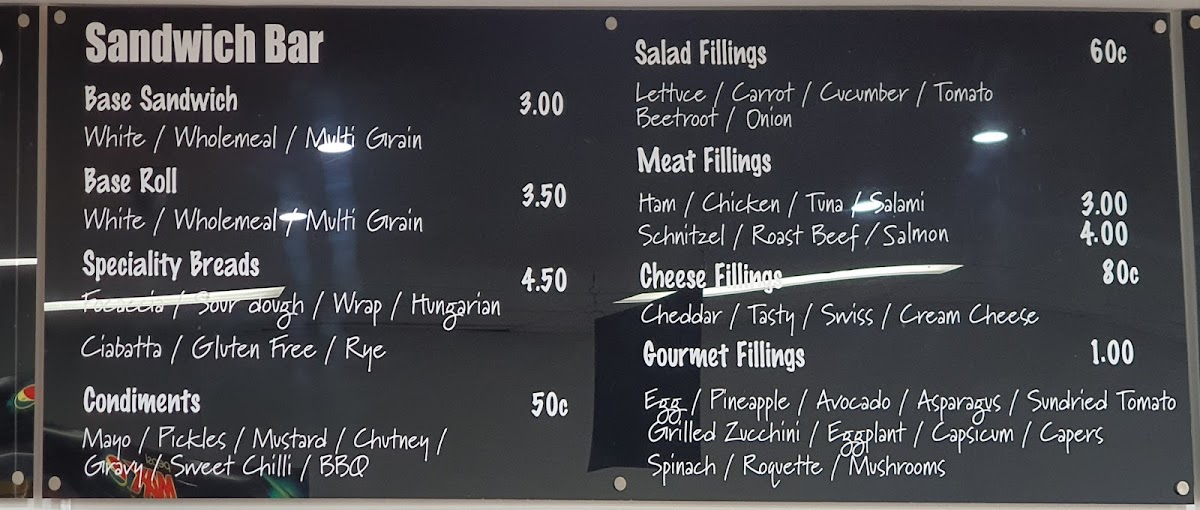 Sandwich Bar
Base Sandwich 3.00
White / Wholemeal / Multi Grain
Base Roll 3.50
White / Wholemeal / Multi Grain
Speciality Breads 4.50
Focaccia / Sour dough / Wrap / Hungarian
Ciabatta / Gluten Free / Rye
Condiments 50c
Mayo / Pickles / Mustard / Chutney /
Gravy / Sweet Chilli / BBQ
Salad Fillings 60c
Lettuce / Carrot / Cucumber / Tomato
Beetroot / Onion
Meat Fillings
Ham / Chicken / Tuna / Salami 3.00
Schnitzel / Roast Beef / Salmon 4.00
Cheese Fillings 80c
Cheddar / Tasty / Swiss / Cream Cheese
Gourmet Fillings 1.00
Egg / Pineapple / Avocado / Asparagus / Sundried Tomato
Grilled Zucchini / Eggplant / Capsicum / Capers
Spinach / Roquette / Mushrooms